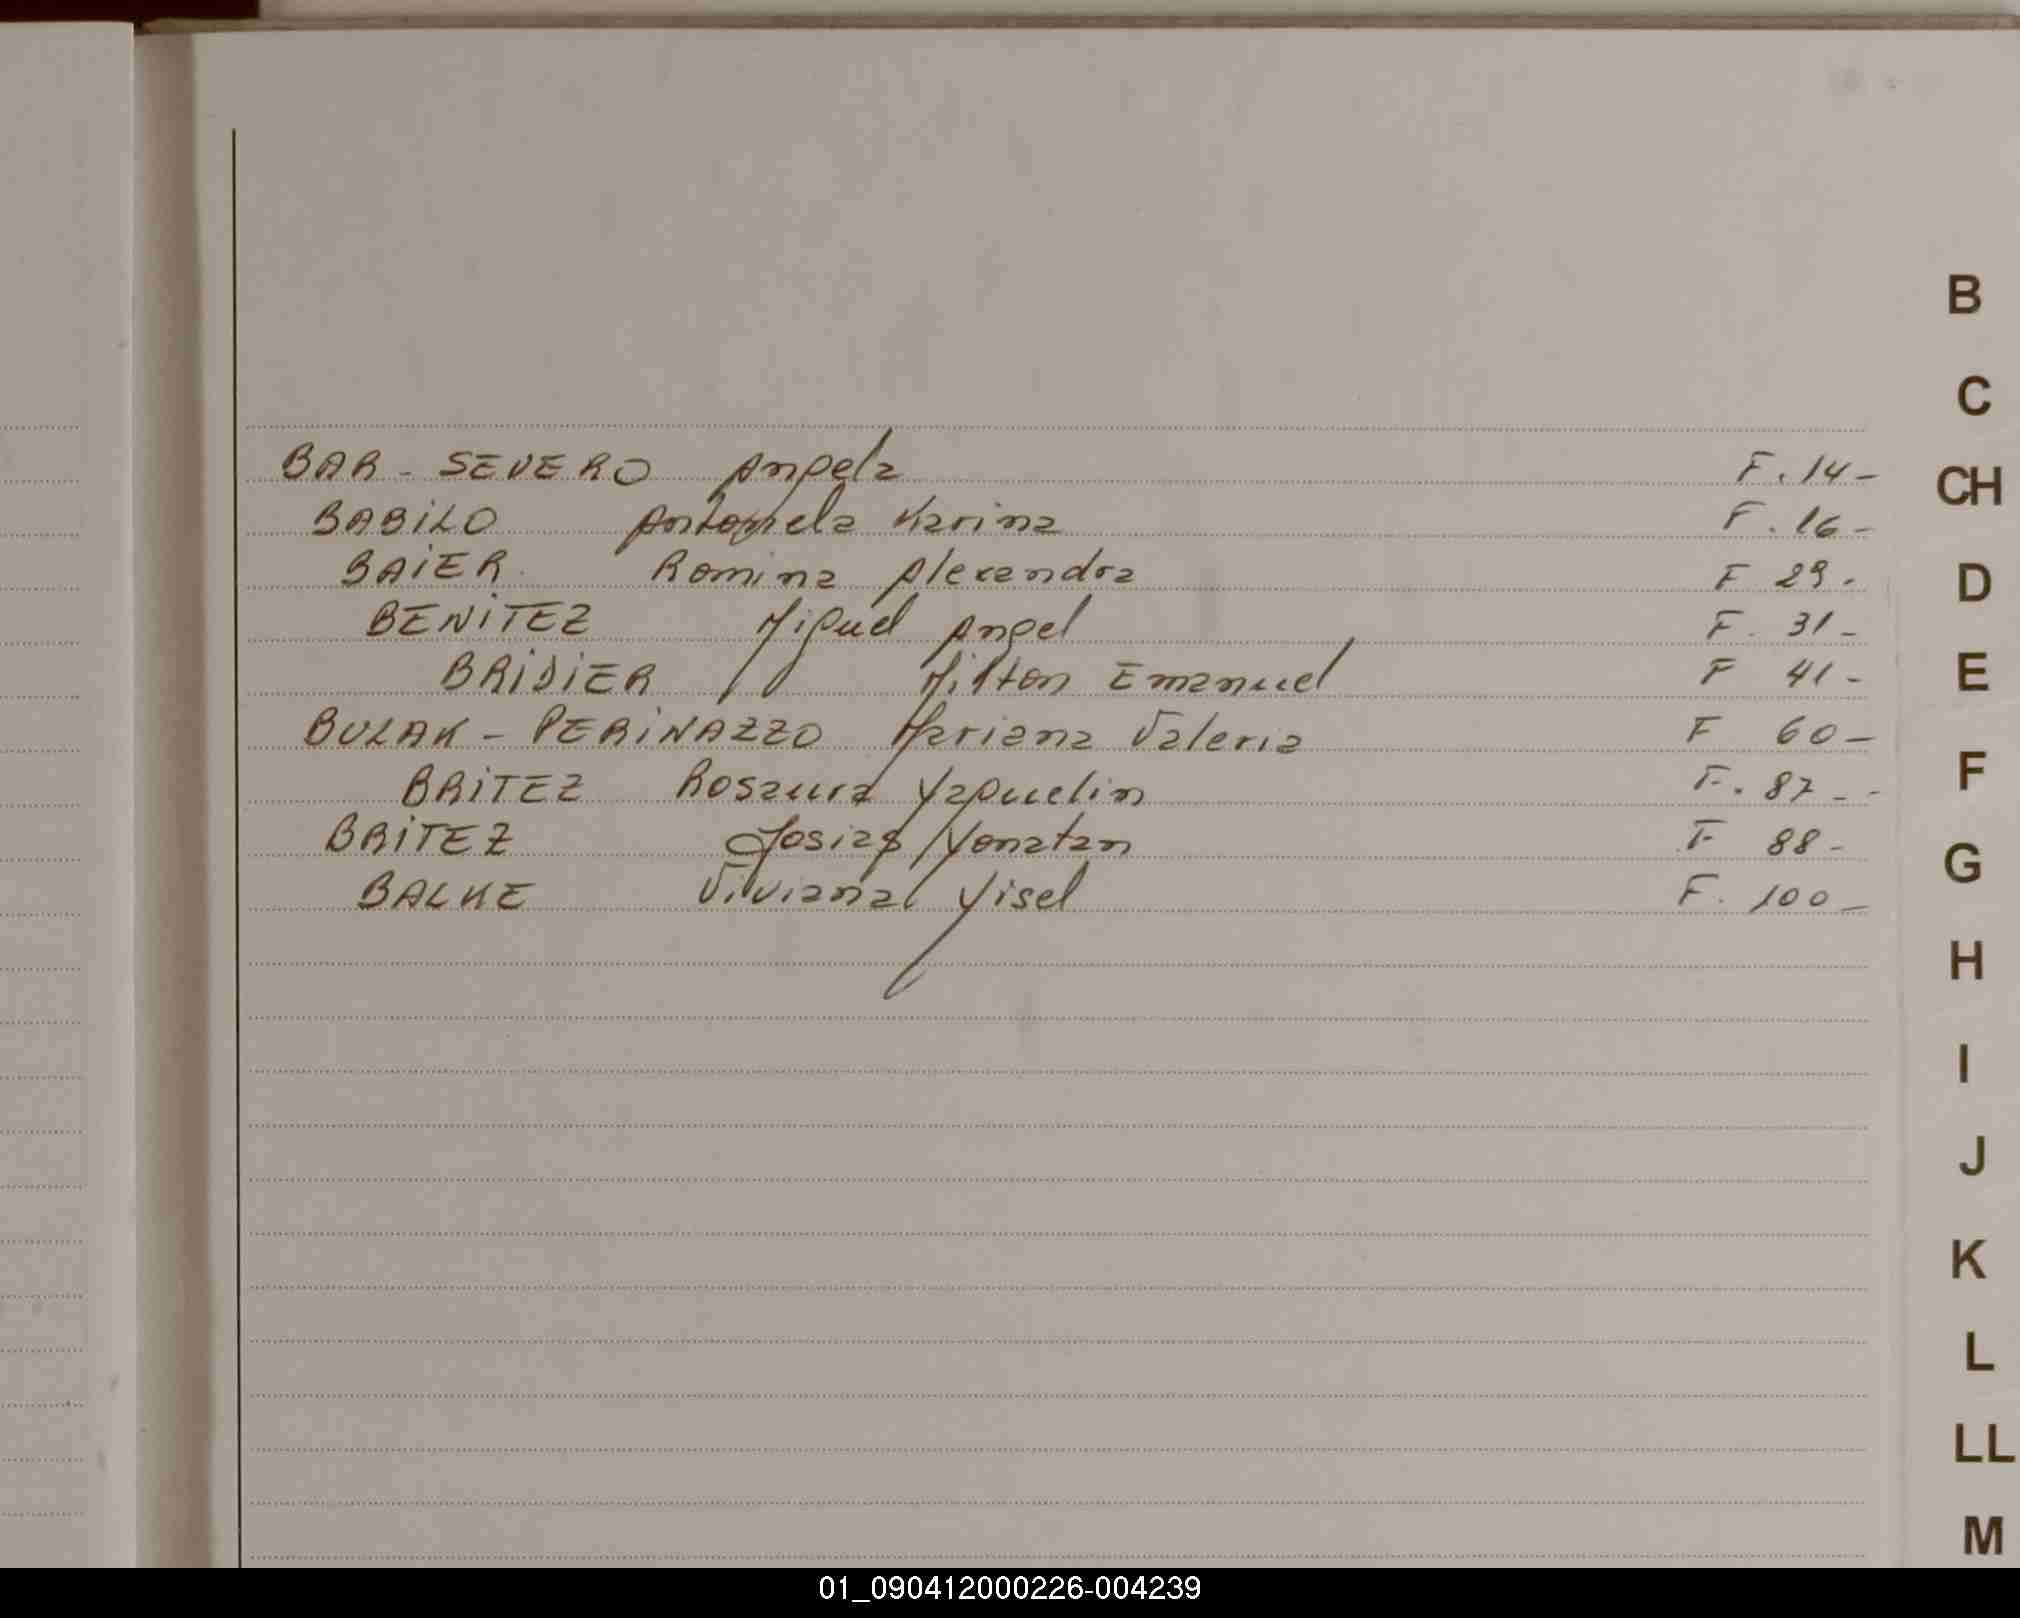 BAR - SEVERO Angela F. 14-
BABILO Antonela Karina F. 16-
BAIER Romina Alexandra F 29.
BENITEZ Miguel Angel F. 31-
BRIDIER Milton Emanuel F 41-
BULAK - PERINAZZO Mariana Valeria F 60-
BRITEZ Rosaura Yaquelin F. 87--
BRITEZ Josias Yonatan F 88-
BALKE Viviana Yisel F. 100-
B
C
CH
D
E
F
G
H
I
J
K
L
LL
M
01_090412000226-004239